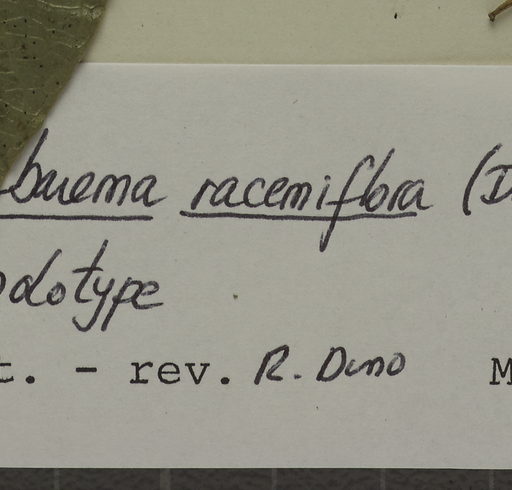 buema racemiflora (D
olotype
t. - rev. R. Duno M